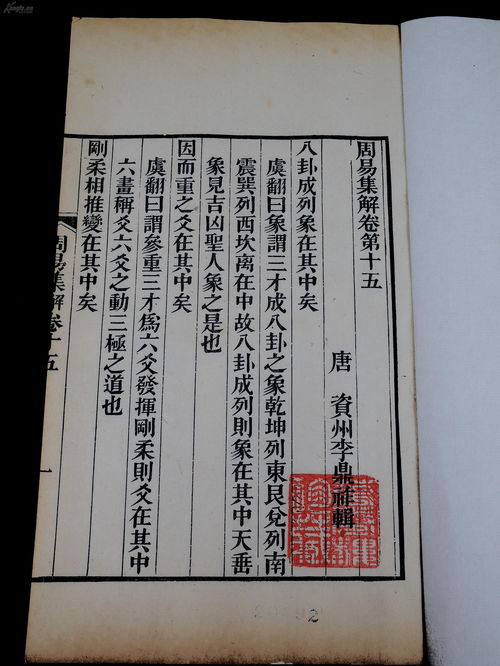 周易集解卷第十五
唐 資州李鼎祚輯
八卦成列象在其中矣
虞翻曰象謂三才成八卦之象乾坤列東艮兌列南
震巽列西坎离在中故八卦成列則象在其中天垂
象見吉凶聖人象之是也
因而重之爻在其中矣
虞翻曰謂參重三才爲六爻發揮剛柔則爻在其中
六畫稱爻六爻之動三極之道也
剛柔相推變在其中矣
周易集解卷十五
一
2